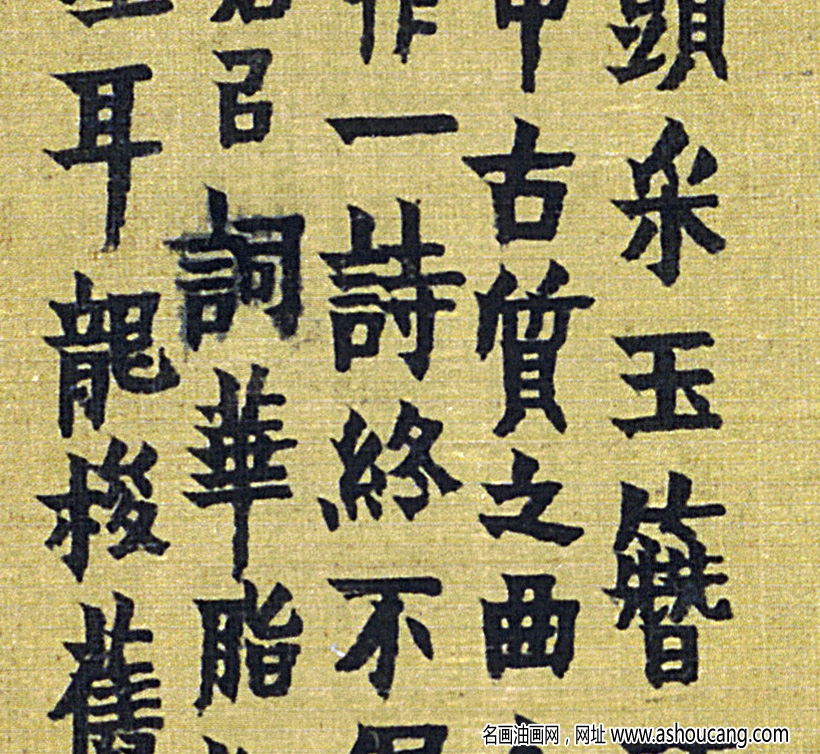 頭采玉簪
古質之曲
作一詩終不
召詞華脂
耳龍梭舊
名画油画网，网址 www.ashoucang.com